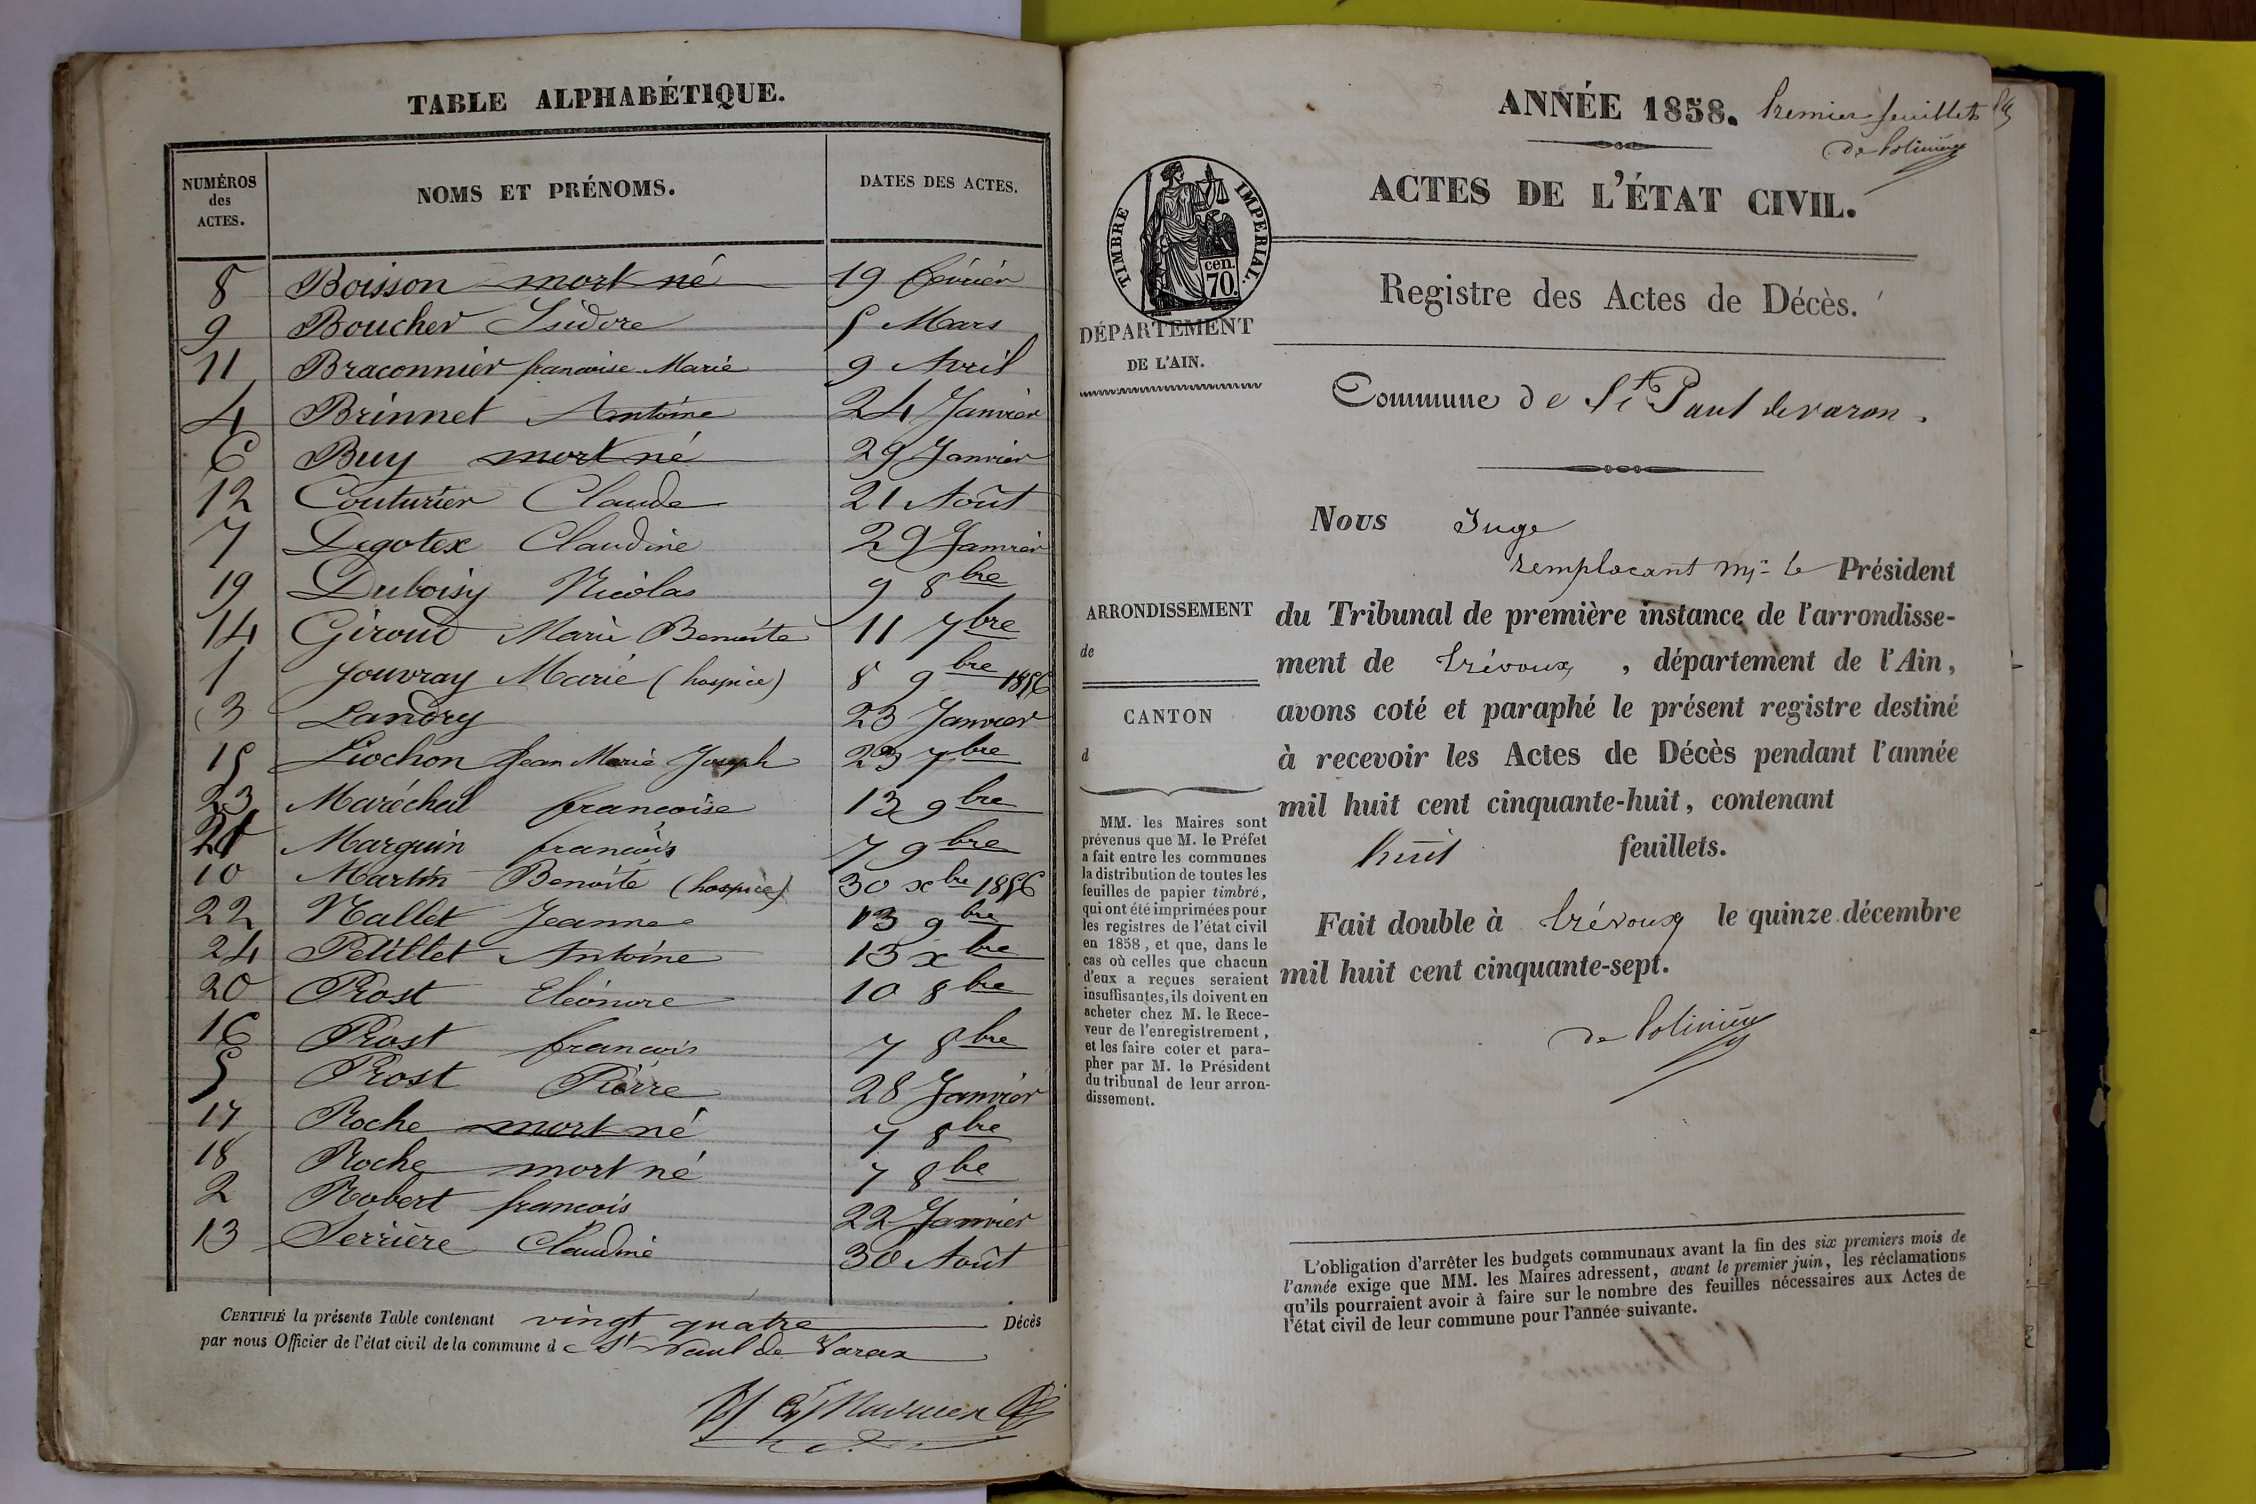 TABLE ALPHABÉTIQUE.
NUMÉROS des ACTES. NOMS ET PRÉNOMS. DATES DES ACTES.
8 Boisson mort né 19 février
9 Boucher Isidore 5 Mars
11 Braconnier francoise Marie 9 Avril
4 Brinnet Antoine 24 Janvier
6 Buy mort né 29 Janvier
12 Couturier Claude 21 Août
7 Degotex Claudine 29 Janvier
19 Duboisy Nicolas 9 8bre
14 Giroud Marie Benoite 11 7bre
1 Jouvray Marie (hospice) 8 9bre 1856
3 Landry 23 Janvier
15 Liochon Jean Marie Joseph 23 7bre
23 Maréchal francoise 13 9bre
21 Marguin francois 7 9bre
10 Martin Benoite (hospice) 30 xbre 1856
22 Nallet Jeanne 13 9bre
24 Petitlet Antoine 13 xbre
20 Prost Eléonore 10 8bre
16 Prost francois 7 8bre
5 Prost Pierre 28 Janvier
17 Roche mort né 7 8bre
18 Roche mort né 7 8bre
2 Robert francois 22 Janvier
13 Serrière Claudine 30 Août
CERTIFIÉ la présente Table contenant vingt quatre Décès
par nous Officier de l'état civil de la commune d e St Paul de Varax
ANNÉE 1858. Premier feuillet
de Polinière
ACTES DE L'ÉTAT CIVIL.
TIMBRE IMPERIAL.
cen.
70.
Registre des Actes de Décès.
DÉPARTEMENT
DE L'AIN.
Commune de St Paul de varax.
Nous Juge
remplacant Mr le Président
du Tribunal de première instance de l'arrondisse-
ment de trévoux, département de l'Ain,
avons coté et paraphé le présent registre destiné
à recevoir les Actes de Décès pendant l'année
mil huit cent cinquante-huit, contenant
huit feuillets.
Fait double à trévoux le quinze décembre
mil huit cent cinquante-sept.
de Polinière
ARRONDISSEMENT
de
CANTON
d
MM. les Maires sont
prévenus que M. le Préfet
a fait entre les communes
la distribution de toutes les
feuilles de papier timbré,
qui ont été imprimées pour
les registres de l'état civil
en 1858, et que, dans le
cas où celles que chacun
d'eux a reçues seraient
insuffisantes, ils doivent en
acheter chez M. le Rece-
veur de l'enregistrement,
et les faire coter et para-
pher par M. le Président
du tribunal de leur arron-
dissement.
L'obligation d'arrêter les budgets communaux avant la fin des six premiers mois de
l'année exige que MM. les Maires adressent, avant le premier juin, les réclamations
qu'ils pourraient avoir à faire sur le nombre des feuilles nécessaires aux Actes de
l'état civil de leur commune pour l'année suivante.